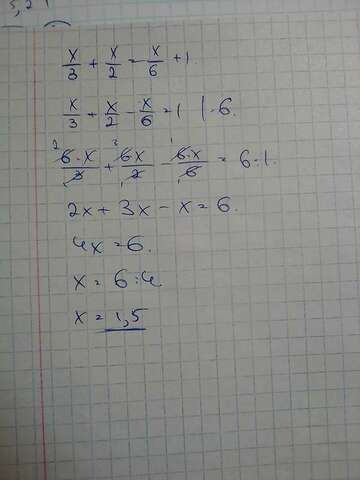 x/3 + x/2 = x/6 + 1.
x/3 + x/2 - x/6 = 1 | · 6.
6·x/3 + 6·x/2 - 6·x/6 = 6·1.
2x + 3x - x = 6.
4x = 6.
x = 6:4.
x = 1,5